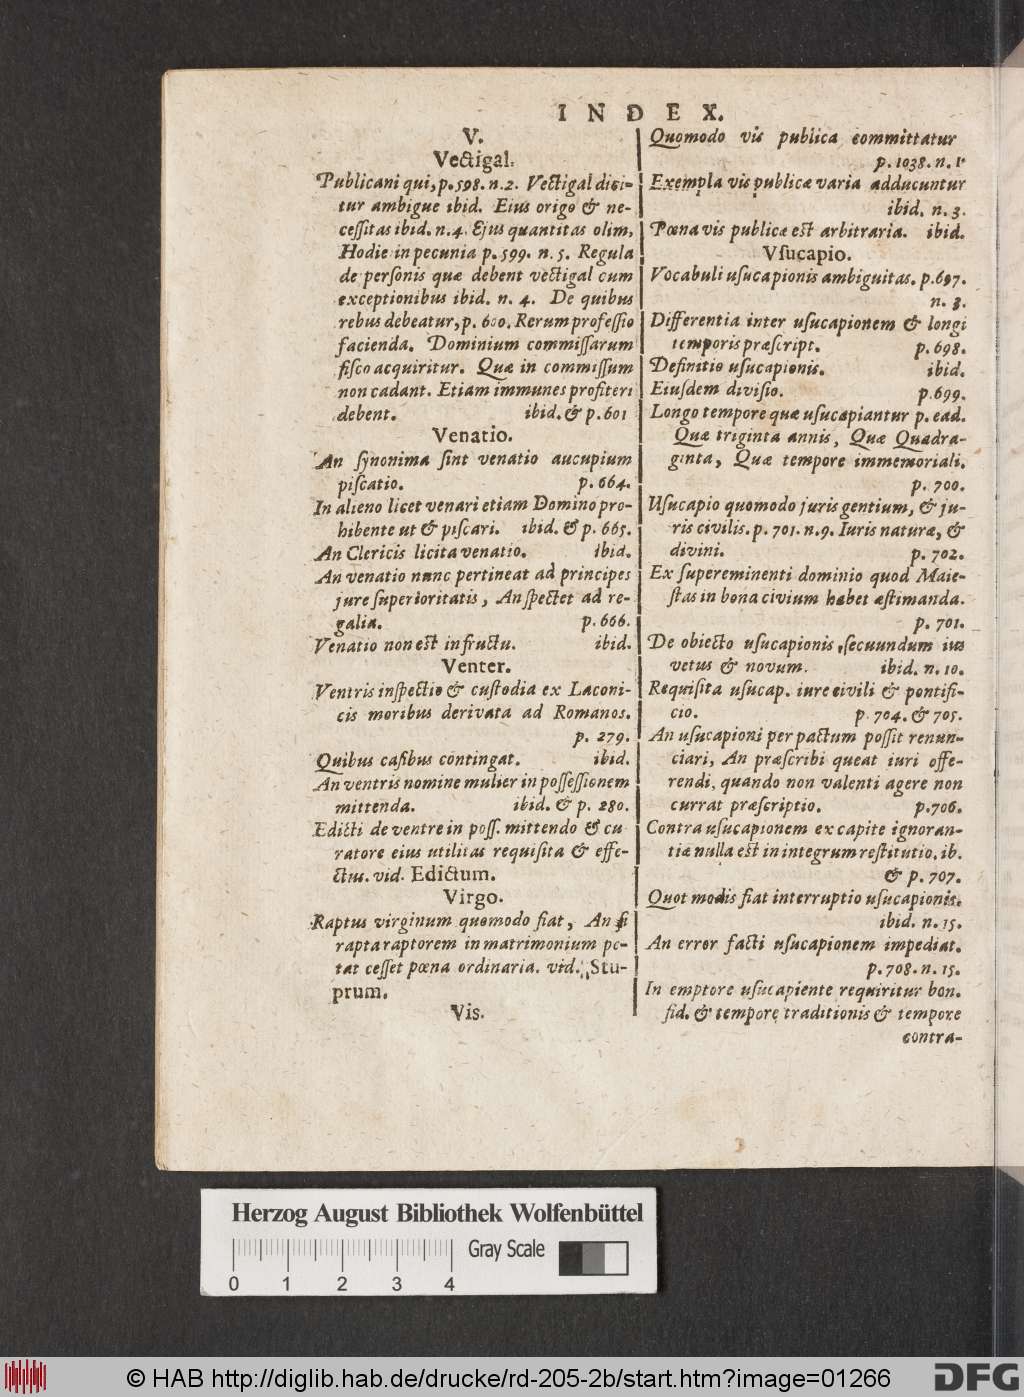 INDEX.
V.
Vectigal.
Publicani qui, p. 598. n. 2. Vectigal dici-
tur ambigue ibid. Eius origo & ne-
cessitas ibid. n. 4. Ejus quantitas olim,
Hodie in pecunia p. 599. n. 5. Regula
de personis quæ debent vectigal cum
exceptionibus ibid. n. 4. De quibus
rebus debeatur, p. 600. Rerum professio
facienda. Dominium commissarum
fisco acquiritur. Quæ in commissum
non cadant. Etiam immunes profiteri
debent. ibid. & p. 601
Venatio.
An synonima sint venatio aucupium
piscatio. p. 664.
In alieno licet venari etiam Domino pro-
hibente ut & piscari. ibid. & p. 665.
An Clericis licita venatio. ibid.
An venatio nunc pertineat ad principes
jure superioritatis, An spectet ad re-
galia. p. 666.
Venatio non est in fructu. ibid.
Venter.
Ventris inspectio & custodia ex Laconi-
cis moribus derivata ad Romanos.
p. 279.
Quibus casibus contingat. ibid.
An ventris nomine mulier in possessionem
mittenda. ibid. & p. 280.
Edicti de ventre in poss. mittendo & cu
ratore eius utilitas requisita & effe-
ctus. vid. Edictum.
Virgo.
Raptus virginum quomodo fiat, An si
rapta raptorem in matrimonium pe-
tat cesset pœna ordinaria. vid. Stu-
prum.
Vis.
Quomodo vis publica committatur
p. 1038. n. 1.
Exempla vis publicæ varia adducuntur
ibid. n. 3.
Pœna vis publicæ est arbitraria. ibid.
Vsucapio.
Vocabuli usucapionis ambiguitas. p. 697.
n. 3.
Differentia inter usucapionem & longi
temporis præscript. p. 698.
Definitio usucapionis. ibid.
Eiusdem divisio. p. 699.
Longo tempore quæ usucapiantur p. ead.
Quæ triginta annis, Quæ Quadra-
ginta, Quæ tempore immemoriali.
p. 700.
Usucapio quomodo juris gentium, & ju-
ris civilis. p. 701. n. 9. Iuris naturæ, &
divini. p. 702.
Ex supereminenti dominio quod Maie-
stas in bona civium habet æstimanda.
p. 701.
De obiecto usucapionis, secuundum ius
vetus & novum. ibid. n. 10.
Requisita usucap. iure civili & pontifi-
cio. p. 704. & 705.
An usucapioni per pactum possit renun-
ciari, An præscribi queat iuri offe-
rendi, quando non valenti agere non
currat præscriptio. p. 706.
Contra usucapionem ex capite ignoran-
tiæ nulla est in integrum restitutio. ib.
& p. 707.
Quot modis fiat interruptio usucapionis.
ibid. n. 15.
An error facti usucapionem impediat.
p. 708. n. 15.
In emptore usucapiente requiritur bon.
fid. & tempore traditionis & tempore
contra-
Herzog August Bibliothek Wolfenbüttel
Gray Scale
0 1 2 3 4
© HAB http://diglib.hab.de/drucke/rd-205-2b/start.htm?image=01266
DFG